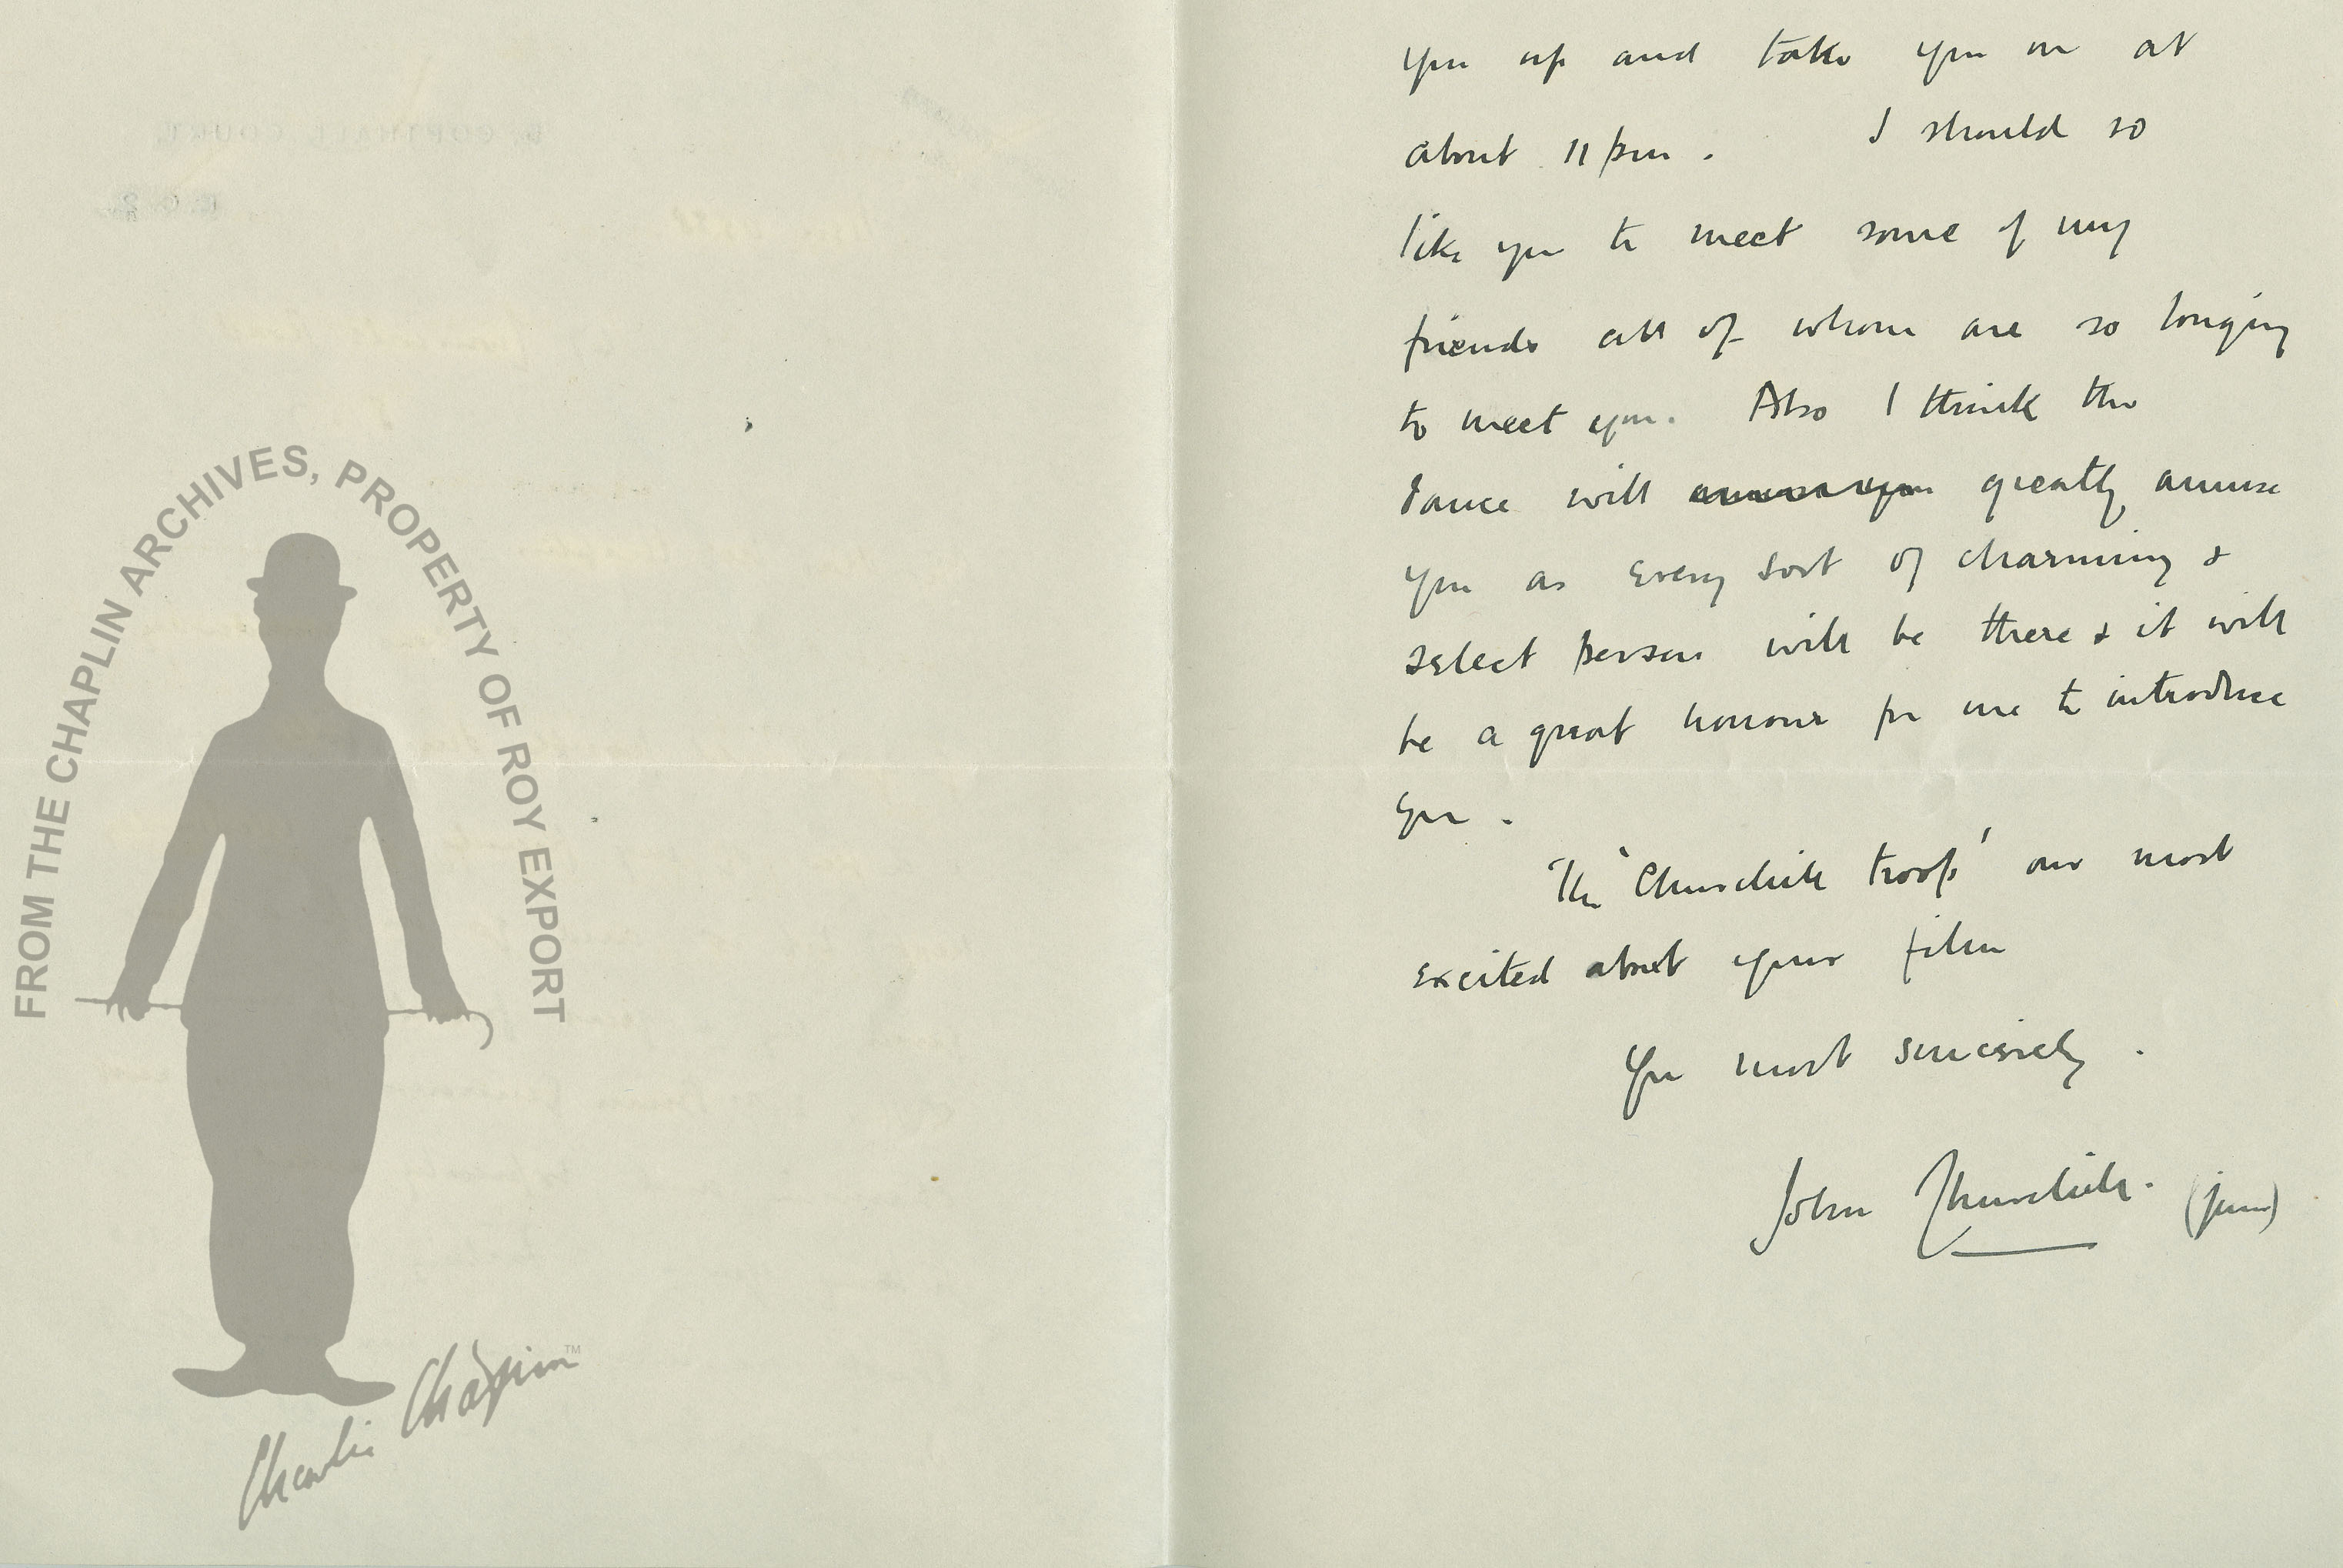 FROM THE CHAPLIN ARCHIVES, PROPERTY OF ROY EXPORT
Charlie Chaplin™
you up and take you on at
about 11 pm. I should so
like you to meet some of my
friends all of whom are so longing
to meet you. Also I think the
dance will greatly amuse
you as every sort of charming &
select person will be there & it will
be a great honour for me to introduce
you.
The 'Churchill troop' are most
excited about your film
Yrs most sincerely.
John Churchill. (jun)